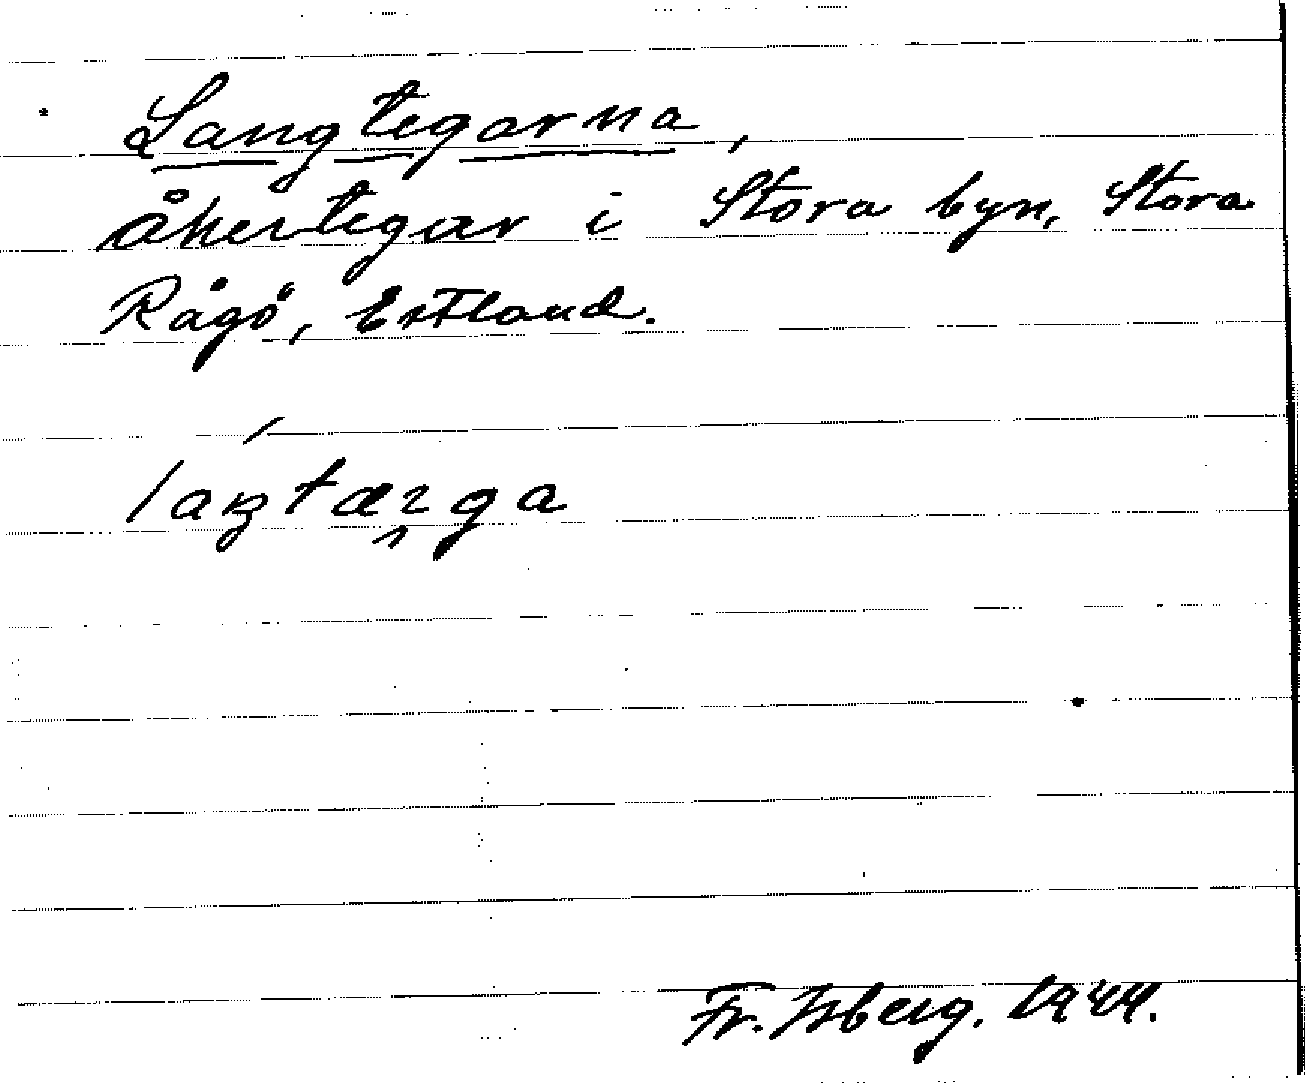 Langtegarna,
åkertegar i Stora byn, Stora
Rågö, Estland.
Fr. Isberg. 1944.